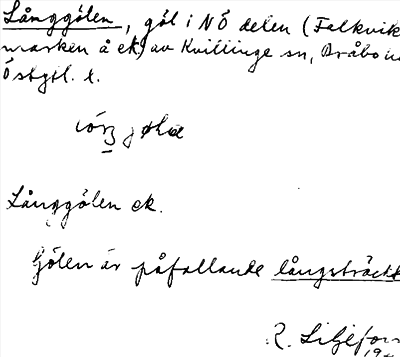 Långgölen, göl i NÖ delen (Falkvik
marken å ek) av Kvillinge sn, Bråbo
Östgtl. l.
Långgölen ek.
Gölen är påfallande långsträckt
R. Liljefor